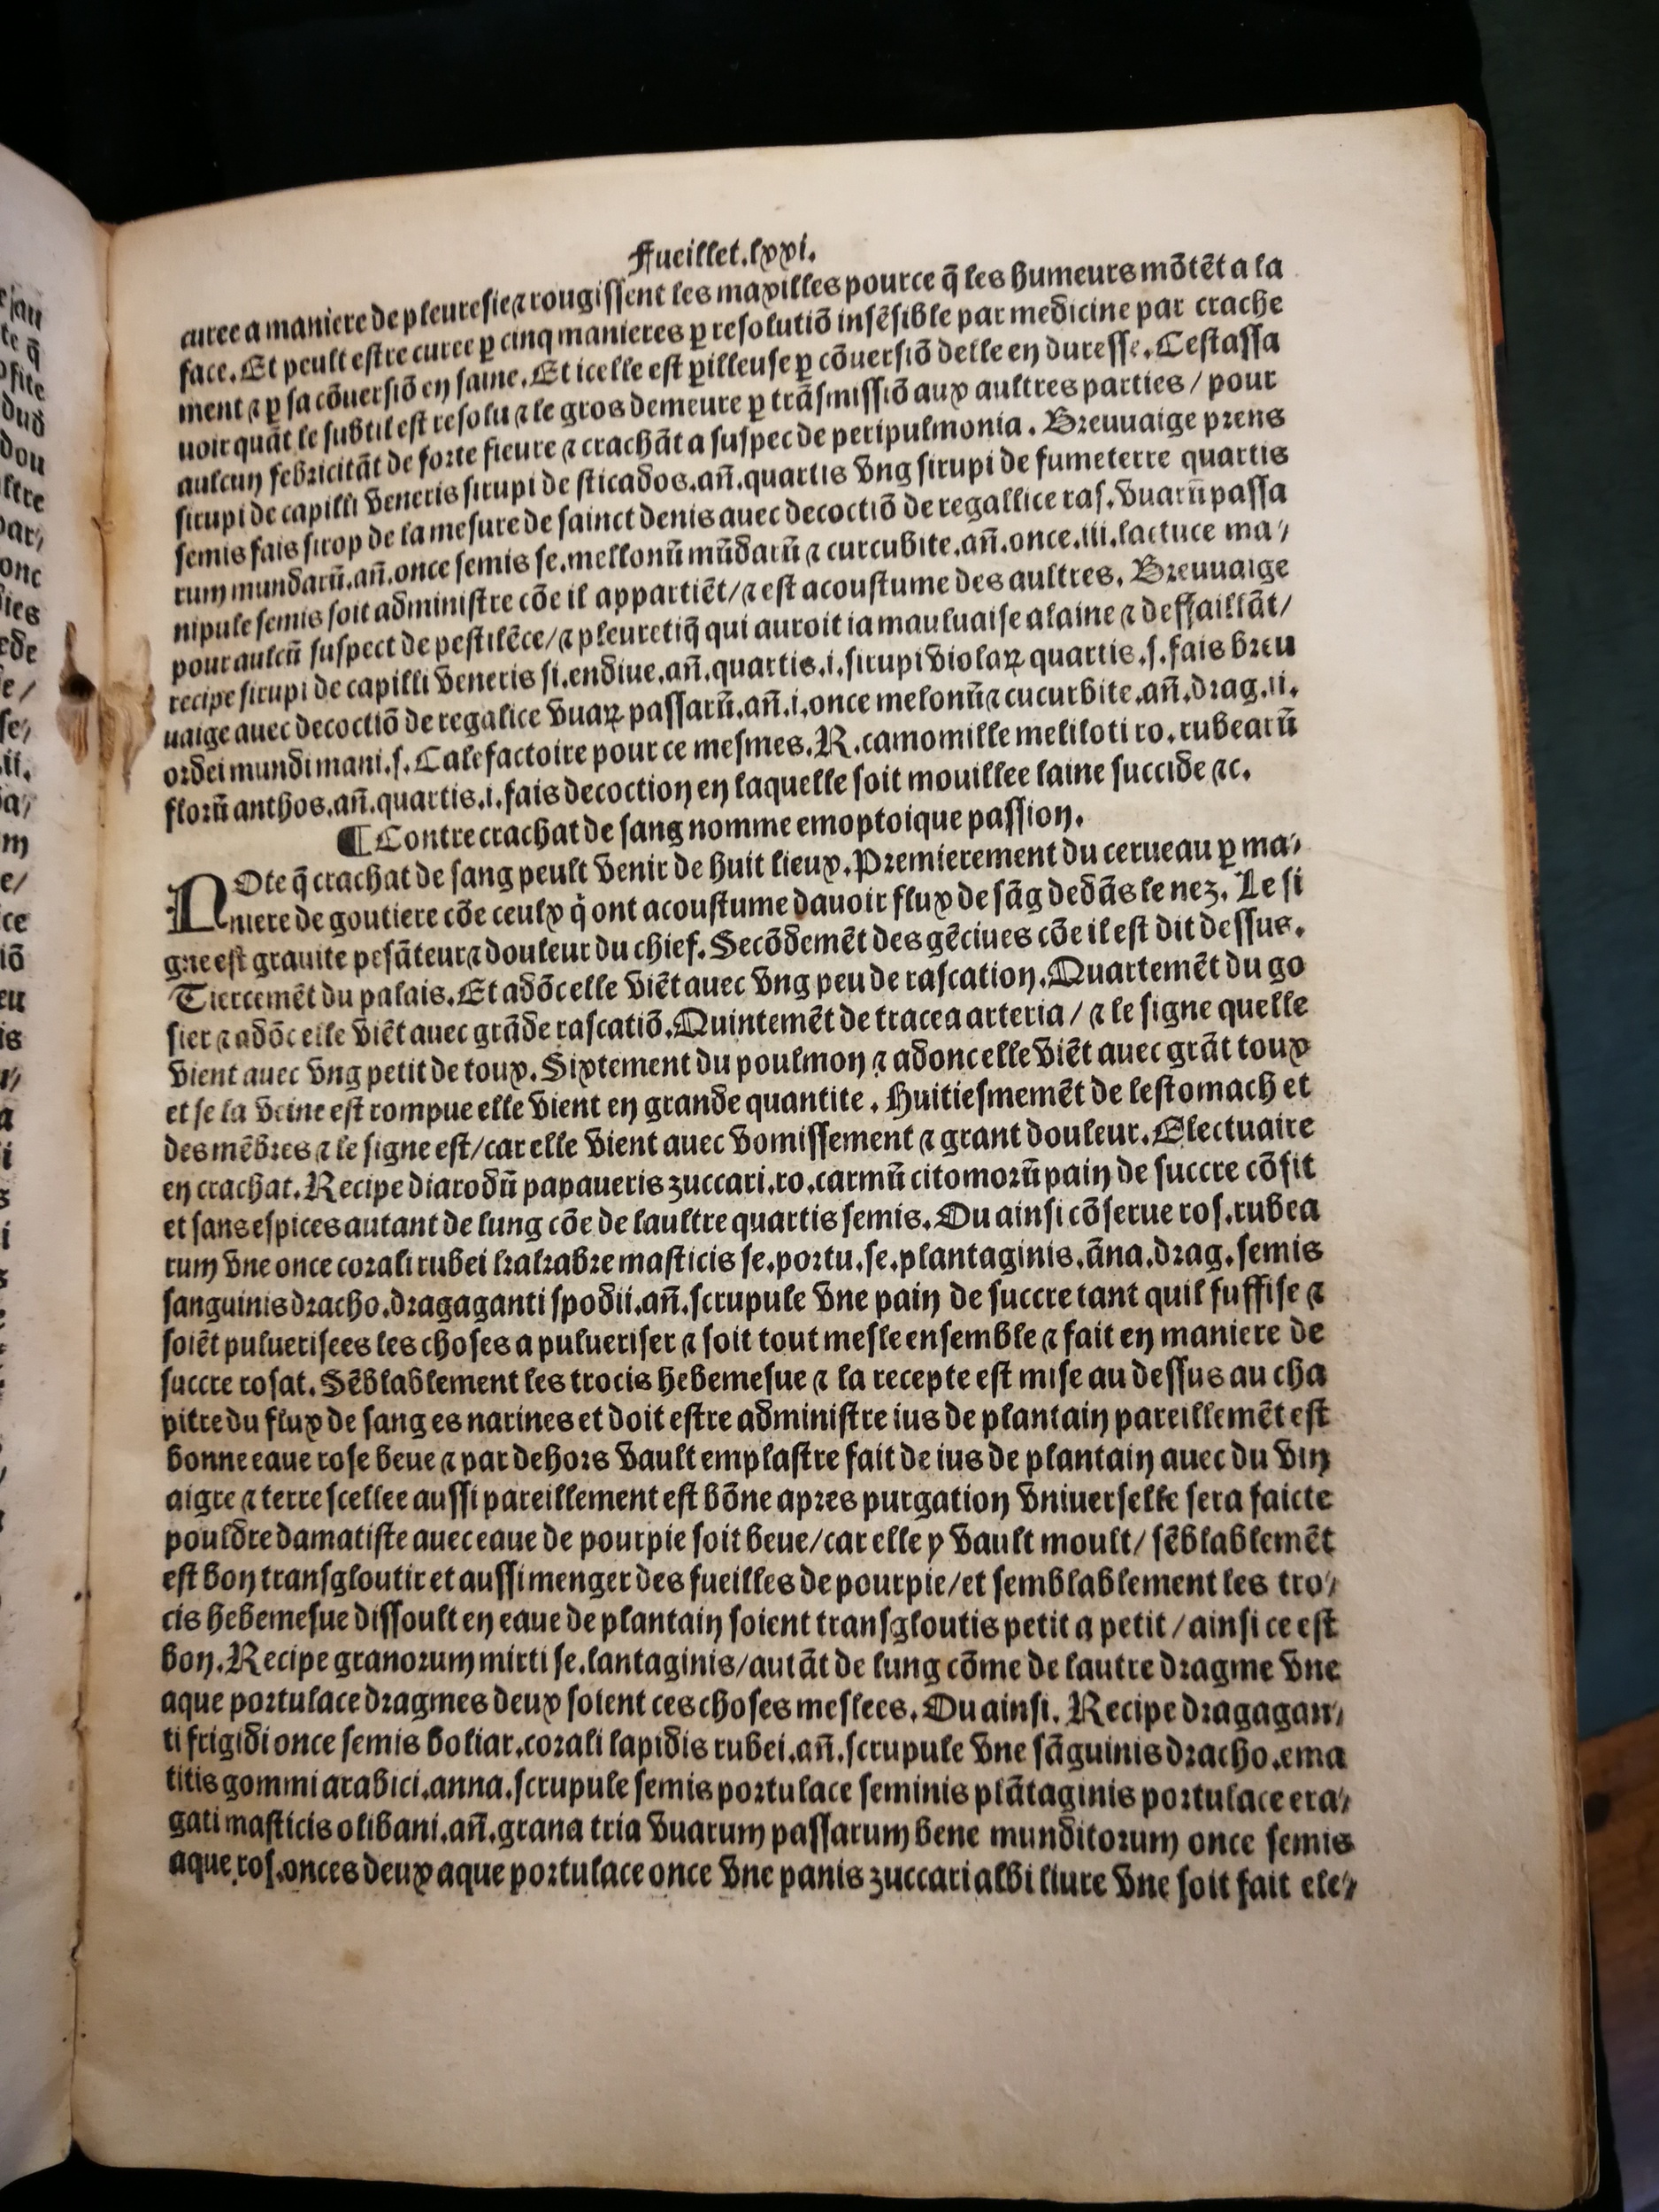 Fueillet.lxxi.
curee a maniere de pleuresie ⁊ rougissent les maxilles pource q̃ les humeurs mõtẽt a la
face. Et peult estre curee ꝑ cinq manieres ꝑ resolutiõ insẽsible par medicine par crache
ment ⁊ ꝑ sa cõuersiõ en sanie. Et icelle est ꝑilleuse ꝑ cõuersiõ delle en duresse. Cestassa
uoir quãt le subtil est resolu ⁊ le gros demeure ꝑ trãsmissiõ aux aultres parties / pour
aulcun febricitãt de forte fieure ⁊ crachãt a suspec de peripulmonia. Breuuaige prens
sirupi de capilli veneris sirupi de sticados. añ. quartis vng sirupi de fumeterre quartis
semis fais sirop de la mesure de sainct denis auec decoctiõ de regallice ras. vuarũ passa
rum mundarũ. añ. once semis se. mellonũ mũdarũ ⁊ curcubite. añ. once. iii. lactuce ma⸗
nipule semis soit administre cõe il appartiẽt / ⁊ est acoustume des aultres. Breuuaige
pour aulcũ suspect de pestilẽce / ⁊ pleuretiq̃ qui auroit ia mauluaise alaine ⁊ deffaillãt /
recipe sirupi de capilli veneris si. endiue. añ. quartis. i. sirupi violaꝝ quartis. s. fais breu
uaige auec decoctiõ de regalice vuaꝝ passarũ. añ. i. once melonũ ⁊ cucurbite. añ. drag. ii.
ordei mundi mani. s. Calefactoire pour ce mesmes. R. camomille meliloti ro. rubearũ
florũ anthos. añ. quartis. i. fais decoction en laquelle soit mouillee laine succide ⁊c.
¶ Contre crachat de sang nomme emoptoique passion.
NOte q̃ crachat de sang peult venir de huit lieux. Premierement du cerueau ꝑ ma⸗
niere de goutiere cõe ceulx q̇ ont acoustume dauoir flux de sãg dedãs le nez. Le si
gne est grauite pesãteur ⁊ douleur du chief. Secõdemẽt des gẽciues cõe il est dit dessus.
Tiercemẽt du palais. Et adõc elle viẽt auec vng peu de rascation. Quartemẽt du go
sier ⁊ adõc elle viẽt auec grãde rascatiõ. Quintemẽt de tracea arteria / ⁊ le signe quelle
vient auec vng petit de toux. Sixtement du poulmon ⁊ adonc elle viẽt auec grãt toux
et se la veine est rompue elle vient en grande quantite. Huitiesmemẽt de lestomach et
des mẽbres ⁊ le signe est / car elle vient auec vomissement ⁊ grant douleur. Electuaire
en crachat. Recipe diarodũ papaueris zuccari. ro. carmũ citomorũ pain de succre cõfit
et sans espices autant de lung cõe de laultre quartis semis. Ou ainsi cõserue ros. rubea
rum vne once corali rubei krakabre masticis se. portu. se. plantaginis. ãna. drag. semis
sanguinis dracho. dragaganti spodii. añ. scrupule vne pain de succre tant quil suffise ⁊
soiẽt puluerisees les choses a pulueriser ⁊ soit tout mesle ensemble ⁊ fait en maniere de
succre rosat. Sẽblablement les trocis hebemesue ⁊ la recepte est mise au dessus au cha
pitre du flux de sang es narines et doit estre administre ius de plantain pareillemẽt est
bonne eaue rose beue ⁊ par dehors vault emplastre fait de ius de plantain auec du vin
aigre ⁊ terre scellee aussi pareillement est bõne apres purgation vniuerselle sera faicte
pouldre damatiste auec eaue de pourpie soit beue / car elle y vault moult / sẽblablemẽt
est bon transgloutir et aussi menger des fueilles de pourpie / et semblablement les tro⸗
cis hebemesue dissoult en eaue de plantain soient transgloutis petit a petit / ainsi ce est
bon. Recipe granorum mirti se. lantaginis / autãt de lung cõme de lautre dragme vne
aque portulace dragmes deux soient ces choses meslees. Ou ainsi. Recipe dragagan⸗
ti frigidi once semis boliar. corali lapidis rubei. añ. scrupule vne sãguinis dracho. ema
titis gommi arabici. anna. scrupule semis portulace seminis plãtaginis portulace era⸗
gati masticis olibani. añ. grana tria vuarum passarum bene munditorum once semis
aque ros. onces deux aque portulace once vne panis zuccari albi liure vne soit fait ele⸗